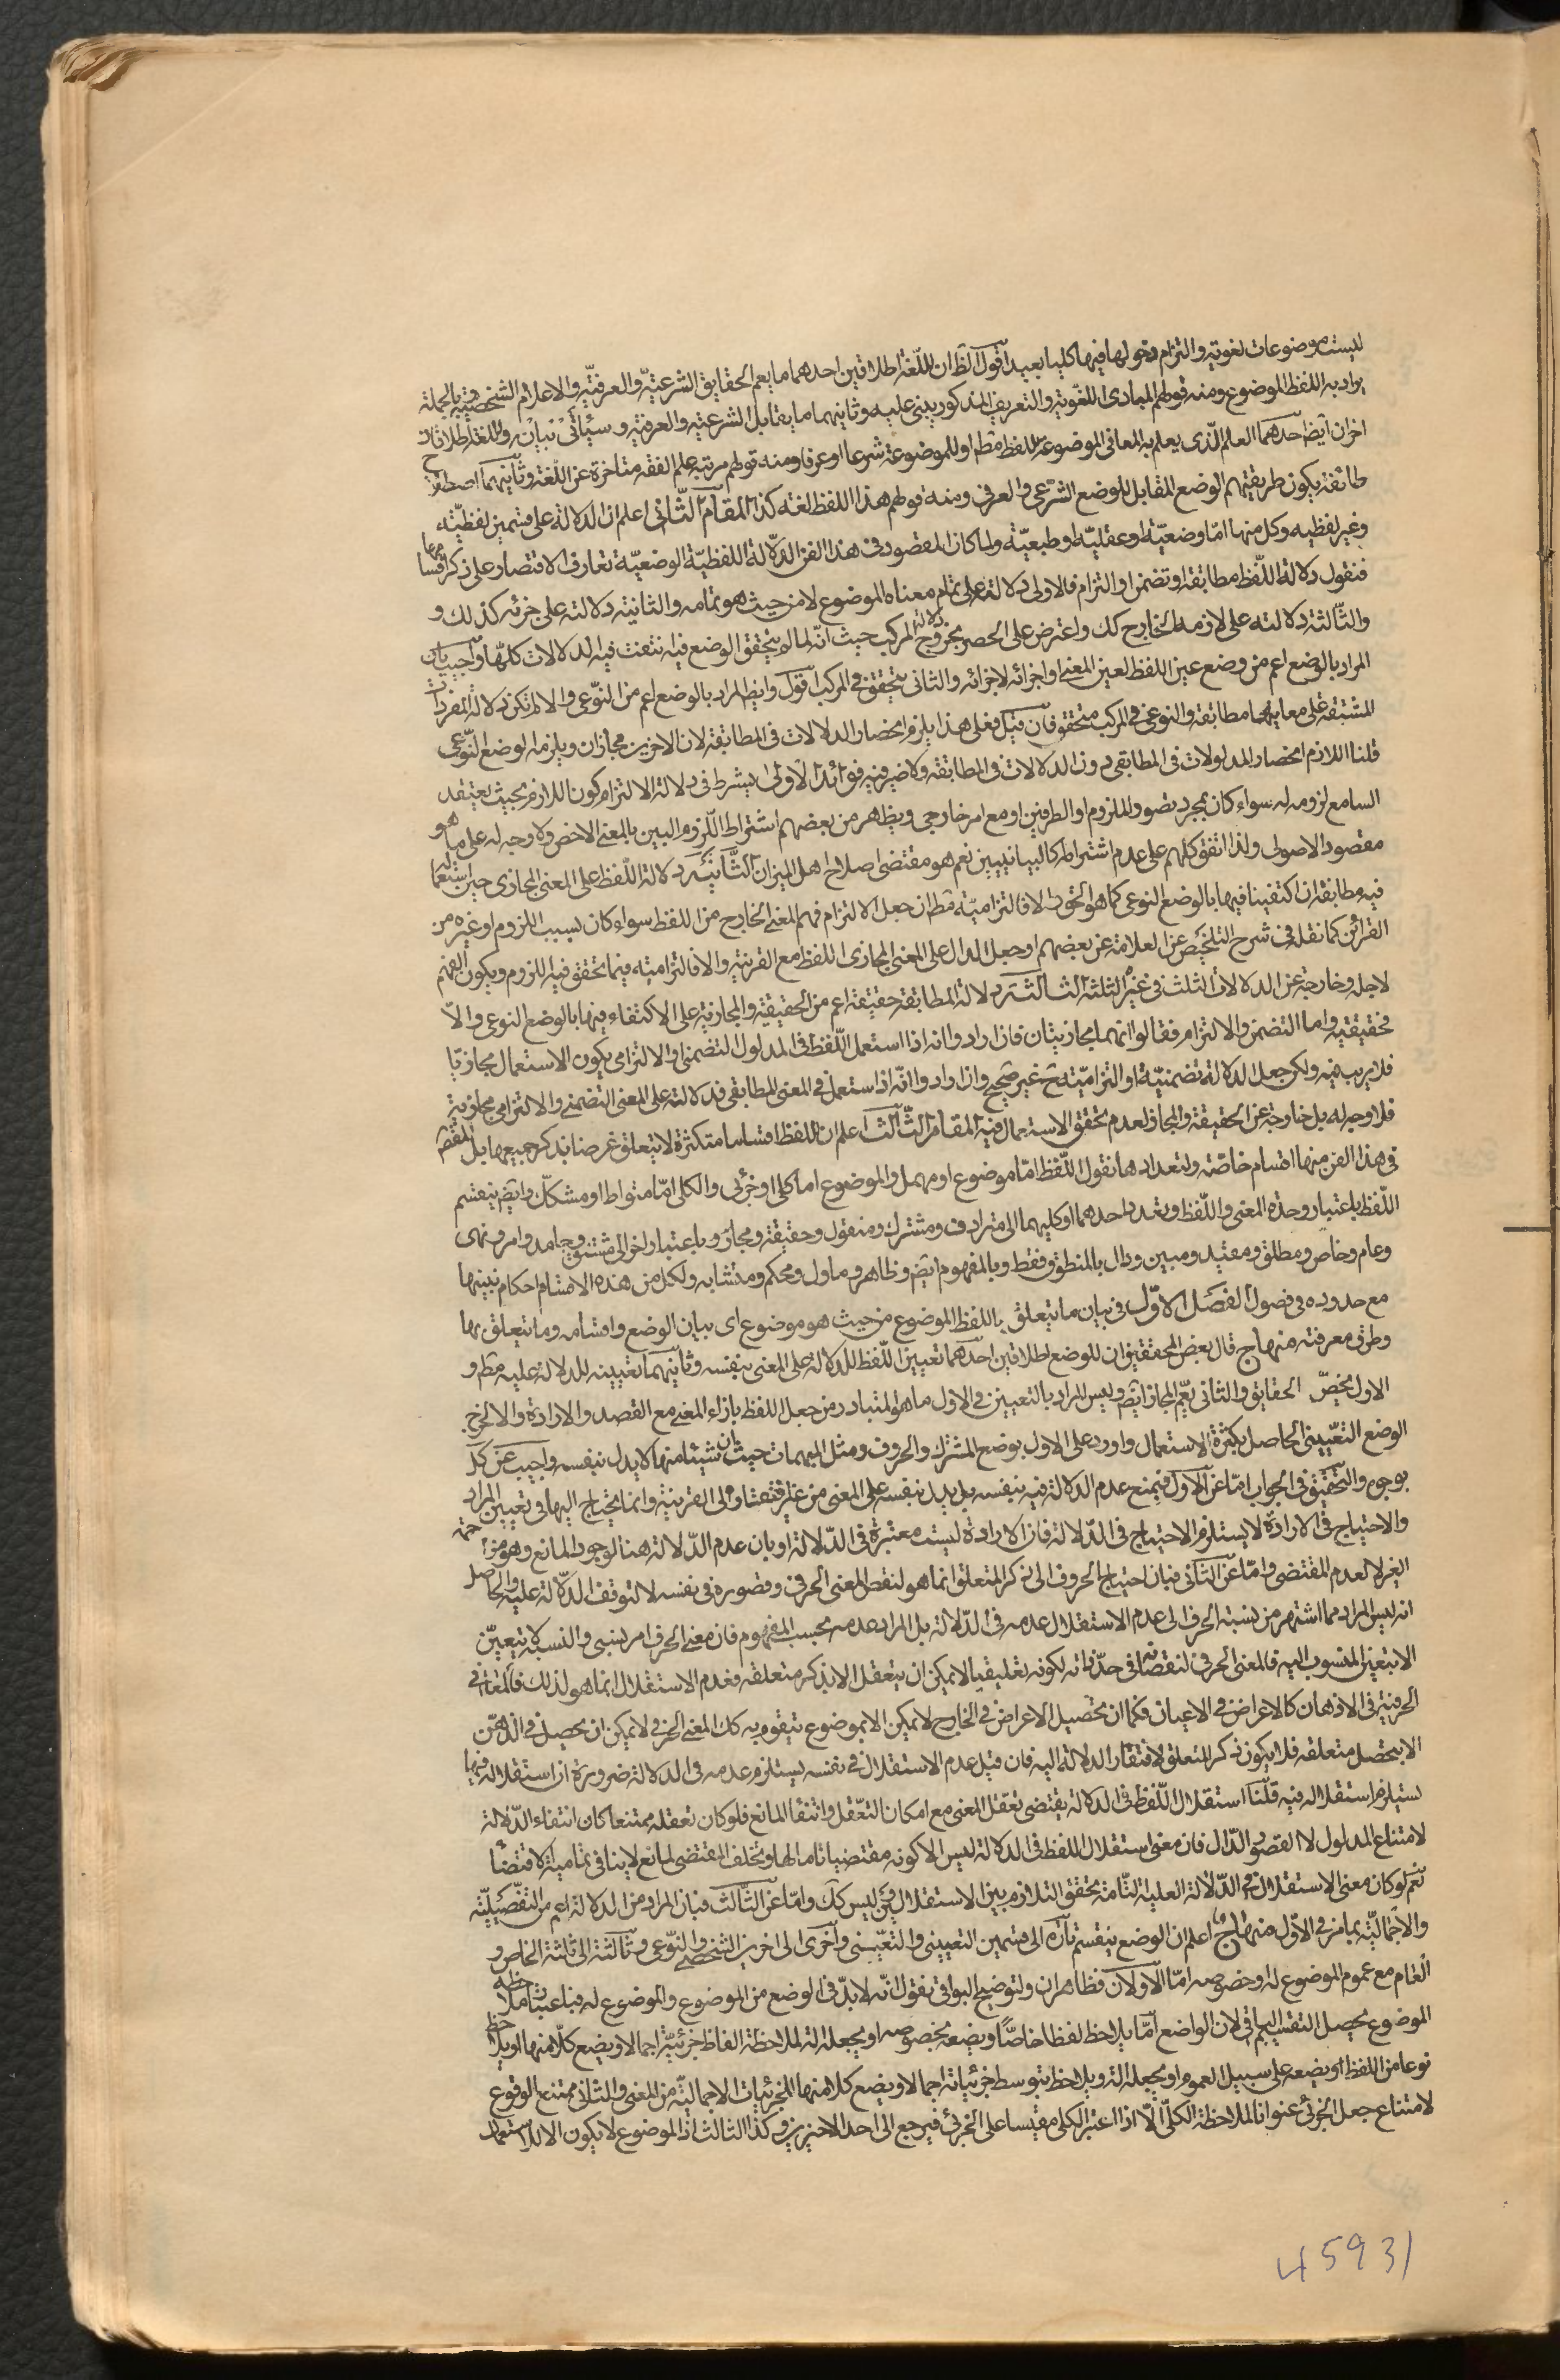 ليست موضوعات لغوية والتزام دخولها فيها كليا بعيد اقول الظ ان للّغة اطلاقين احدهما ما يعم الحقايق الشرعيّة والعرفيّة والاعلام الشخصيّة بالجملة
يراد به اللفظ الموضوع ومنه قولهم المبادى اللّغوية والتعريف المذكور يبنى عليه وثانيهما ما يقابل الشرعية والعرفية وسيأتى بيانه وللّغة اطلاقان
اخران ايض احدهما العلم الّذى يعلم به المعانى الموضوعة للفظ مط او للموضوعة شرعا او عرفا ومنه قولهم مرتبة علم الفقه متاخرة عن اللّغة وثانيهما اصطلاح
طائفة يكون طريقتهم الوضع المقابل للوضع الشرعى والعرفى ومنه قولهم هذا اللفظ لغة كذا المقام الثّانى اعلم ان الدلالة على قسمين لفظيّة
وغير لفظيه وكل منهما امّا وضعيّة او عقليّة او طبعيّة ولما كان المقصود فى هذا الفن الدّلالة اللفظيّة الوضعيّة تعارف الاقتصار على ذكر اقسامها
فنقول دلالة اللّفظ مطابقة او تضمن او التزام فالاولى دلالته على تمام معناه الموضوع له من حيث هو تمامه والثانية دلالته على جزئه كذلك و
والثّالثة دلالته على لازمه الخارج كك واعترض على الحصر بخروج دلالة المركب حيث انّه لما لم يتحقق الوضع فيه انتفت فيه الدلالات كلّها واجيب بان
المراد بالوضع اعم من وضع عين اللفظ لعين المعنى او اجزائه لاجزائه والثانى يتحقق فى المركب اقول وايض المراد بالوضع اعم من النّوعى والا لم تكن دلالة المفردات
المشتقة على معانيها مطابقة والنوعى فى المركب متحقق فان قيل فعلى هذا يلزم انحصار الدلالات فى المطابقة لان الاخرين مجازان ويلزمه الوضع النّوعى
قلنا اللازم انحصار المدلولات فى المطابقى دون الدلالات فى المطابقة ولا ضير فيه فوائد الاولى يشترط فى دلالة الالتزام كون اللازم بحيث يعتقد
السامع لزومه له سواء كان بمجرد تصور الملزوم او الطرفين او مع امر خارجى ويظهر من بعضهم اشتراط اللّزوم البين بالمعنى الاخص ولا وجه له على ما هو
مقصود الاصولى ولذا اتفق كلهم على عدم اشتراطه كالبيانيين نعم هو مقتضى اصلاح اهل الميزان الثّانية دلالة اللّفظ على المعنى المجازى حين استعماله
فيه مطابقة ان اكتفينا فيها بالوضع النوعى كما هو الحق والا فالتزاميّة مط ان جعل الالتزام فهم المعنى الخارج من اللفظ سواء كان بسبب اللزوم او غيره من
القرائن كما نقله فى شرح التلخيص عن العلامة عن بعضهم او جعل الدال على المعنى المجازى اللفظ مع القرينة والا فالتزاميه فيما تحقق فيه اللزوم ويكون الفهم
لاجله وخارجة عن الدلالات الثلث فى غيره الثالثة دلالة المطابقة حقيقة اعم من الحقيقية والمجازية على الاكتفاء فيها بالوضع النوعى والّا
فحقيقيه واما التضمن والالتزام فقالوا انهما مجازيتان فان ارادوا انه اذا استعمل اللّفظ فى المدلول التضمنى او الالتزامى يكون الاستعمال مجازيّا
فلا ريب فيه ولكن جعل الدلالة تضمنيّة او التزاميّة ح غير صحيح وان ارادوا انّه اذا استعمل فى المعنى المطابقى فدلالته على المعنى التضمنى والالتزامى مجازية
فلا وجه له بل خارجة عن الحقيقة والمجاز لعدم تحقق الاستعمال فيه المقام الثّالث اعلم ان للفظ اقساما متكثرة لا يتعلق غرضنا بذكر جميعها بل المقص
فى هذا الفن منها اقسام خاصّة ولتعدادها نقول اللّفظ امّا موضوع او مهمل والموضوع اما كلى او جزئى والكلى امّا متواط او مشكك وايض ينقسم
اللّفظ باعتبار وحدة المعنى واللّفظ وتعدد احدهما او كليهما الى مترادف ومشترك ومنقول وحقيقة ومجاز وباعتبار اخر الى مشتق وجامد وامر ونهى
وعام وخاص ومطلق ومقيد ومبين ودال بالمنطوق فقط وبالمفهوم ايض وظاهر وماول ومحكم ومتشابه ولكل من هذه الاقسام احكام نبينها
مع حدوده فى فصول الفصل الاوّل فى بيان ما يتعلق باللفظ الموضوع من حيث هو موضوع اى بيان الوضع واقسامه وما يتعلق بها
وطرق معرفته منهاج قال بعض المحققين ان للوضع اطلاقين احدهما تعيين اللّفظ للدلالة على المعنى بنفسه وثانيهما تعيينه للدلالة عليه مط و
الاول يخصّ الحقايق والثانى يعّم المجاز ايض وليس المراد بالتعيين فى الاول ما هو المتبادر من جعل اللفظ بازاء المعنى مع القصد والارادة والا لخرج
الوضع التعّينى الحاصل بكثرة الاستعمال واورد على الاول بوضع المشترك والحروف ومثل المبهمات حيث ان شيئا منها لا يدل بنفسه واجيب عن كلّ
بوجوه والتحقيق فى الجواب امّا عن الاول فبمنع عدم الدلالة فيه بنفسه بل يدل بنفسه على المعنى من غير افتقار الى القرينة وانما يحتاج اليها فى تعيين المراد
والاحتياج فى الارادة لا يستلزم الاحتياج فى الدّلالة فان الارادة ليست معتبرة فى الدّلالة او بان عدم الدّلالة هنا لوجود المانع وهو مزاحمة
الغير لا لعدم المقتضى وامّا عن الثّانى فبان احتياج الحروف الى ذكر المتعلق انما هو لنقص المعنى الحرفى وقصوره فى نفسه لا لتوقف الدّلالة عليه والحاصل
انه ليس المراد مما اشتهر من نسبة الحرف الى عدم الاستقلال عدمه فى الدّلالة بل المراد عدمه بحسب المفهوم فان معنى الحرف امر نسبى والنسبة لا يتعيّن
الا بتعيّن المنسوب اليه فالمعنى الحرفى لنقصانه فى حدّ ذاته لكونه تعليقيا لا يمكن ان يتعقل الا بذكر متعلقه فعدم الاستقلال انما هو لذلك فالمعانى
الحرفية فى الاذهان كالاعراض فى الاعيان فكما ان تحصيل الاعراض فى الخارج لا يمكن الا بموضوع يتقوم به كك المعنى الحرفى لا يمكن ان يحصل فى الذّهن
الا بتحصل متعلقه فلا يكون ذكر المتعلق لافتقار الدلالة اليه فان قيل عدم الاستقلال فى نفسه يستلزم عدمه فى الدلالة ضرورة ان استقلاله فيها
يستلزم استقلاله فيه قلنا استقلال اللّفظ فى الدلالة يقتضى تعقل المعنى مع امكان التعّقل وانتفاء المانع فلو كان تعقله ممتنعا كان انتفاء الدّلالة
لامتناع المدلول لا القصور الدّال فان معنى استقلال اللفظ فى الدلالة ليس الا كونه مقتضيا تاما لها وتخلف المقتضى لمانع لا ينافى تمامية الاقتضاء
نعم لو كان معنى الاستقلال فى الدّلالة العلية التّامة تحقق التلازم بين الاستقلالين وليس كك وامّا عن الثّالث فبان المراد من الدلالة اعم من التفصيليّة
والاجماليّة بما مر فى الاوّل منهاج اعلم ان الوضع ينقسم تاره الى قسمين التعيينى والتعّينى واخرى الى اخرين الشخصى والنّوعى وثالثة الى ثلثة الخاص و
العام مع عموم الموضوع له وخصوصه امّا الاولان فظاهران ولتوضيح البواقى نقول انّه لا بدّ فى الوضع من الموضوع والموضوع له فباعتبار ملاحظة
الموضوع يحصل التقسيم الثانى لان الواضع امّا يلاحظ لفظا خاصّا ويضعه بخصوصه او يجعله آلة لملاحظة الفاظ جزئيّة اجمالا ويضع كلّا منها او يلاحظ
نوعا من اللفظ او يضعه على سبيل العموم او يجعله آلة ويلاحظ بتوسط جزئياته اجمالا ويضع كلا منها للجزئيات الاجماليّة من المعنى والثانى ممتنع الوقوع
لامتناع جعل الجزئى عنوانا لملاحظة الكلّى الّا اذا اعتبر الكلى مقيسا على الجزئى فيرجع الى احد الاخيرين وكذا الثالث اذ الموضوع لا يكون الا للاستعمال
45931